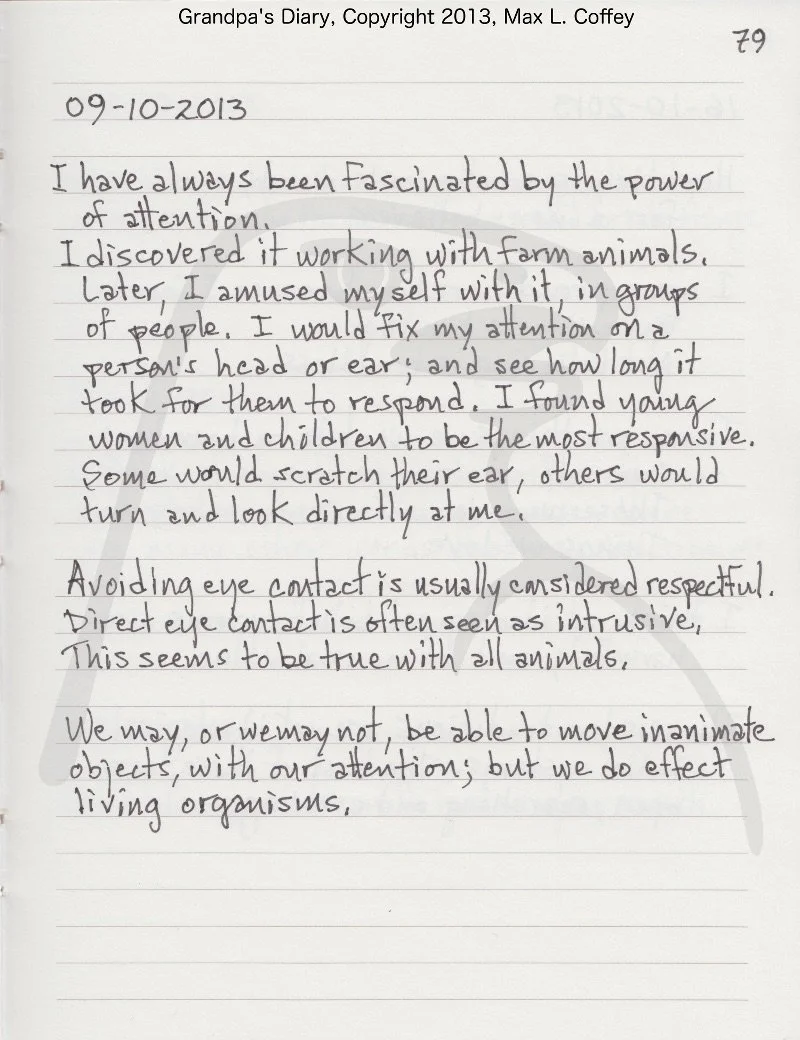 Grandpa's Diary, Copyright 2013, Max L. Coffey
79
09-10-2013
I have always been fascinated by the power
of attention.
I discovered it working with farm animals.
Later, I amused myself with it, in groups
of people. I would fix my attention on a
person's head or ear; and see how long it
took for them to respond. I found young
women and children to be the most responsive.
Some would scratch their ear, others would
turn and look directly at me.
Avoiding eye contact is usually considered respectful.
Direct eye contact is often seen as intrusive,
This seems to be true with all animals.
We may, or we may not, be able to move inanimate
objects, with our attention; but we do effect
living organisms.